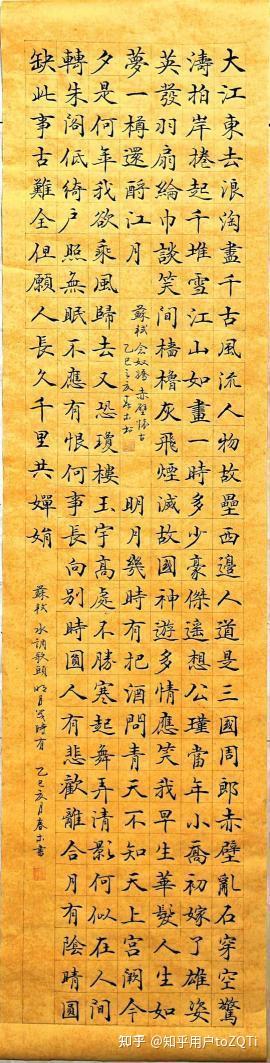 大江東去浪淘盡千古風流人物故壘西邊人道是三國周郎赤壁亂石穿空驚
濤拍岸捲起千堆雪江山如畫一時多少豪傑遙想公瑾當年小喬初嫁了雄姿
英發羽扇綸巾談笑間檣櫓灰飛煙滅故國神遊多情應笑我早生華髮人生如
夢一樽還酹江月
蘇軾念奴嬌赤壁懷古
乙巳
明月幾時有把酒問青天不知天上宮闕今
夕是何年我欲乘風歸去又恐瓊樓玉宇高處不勝寒起舞弄清影何似在人間
轉朱閣低綺戶照無眠不應有恨何事長向別時圓人有悲歡離合月有陰晴圓
缺此事古難全但願人長久千里共嬋娟
蘇軾 水調歌頭 明月幾時有 乙巳亥月春木書
知乎 @知乎用户toZQTi